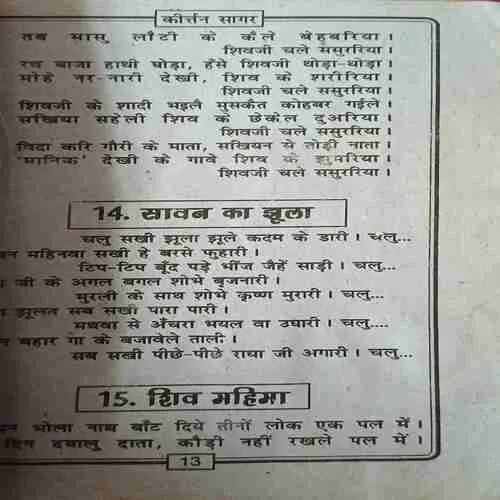 कीर्त्तन सागर
तब सासु लौटी के कैले बेहुबरिया ।
शिवजी चले ससुररिया ।
रथ बाजा हाथी घोड़ा, हँसे शिवजी थोड़ा-थोड़ा ।
मोहे नर-नारी देखी, शिव के शरीरिया ।
शिवजी चले ससुररिया ।
शिवजी के शादी भइलै सुसकैत कोहबर गईले ।
सखिया सहेली शिव के छेकैल दुअरिया ।
शिवजी चले ससुररिया ।
विदा करि गौरी के माता, सखियन से तोड़ी नाता ।
'मानिक' देखी के गावे शिव के झुमरिया ।
शिवजी चले ससुररिया ।
14. सावन का झूला
चलु सखी झूला झूले कदम के डारी । चलु...
महिनवा सखी हे बरसे फुहारी ।
टिप-टिप बूँद पड़े भींज जैहें साड़ी । चलु...
जी के अगल बगल शोभे बृजनारी ।
मुरली के साथ शोभे कृष्ण मुरारी । चलु...
झूलत सब सखी पारा पारी ।
मथवा से अँचरा भयल वा उघारी । चलु....
बहार गा के बजावेले ताली ।
सब सखी पीछे-पीछे राधा जी अगारी । चलु...
15. शिव महिमा
भोला नाथ बाँट दिये तीनों लोक एक पल में ।
दयालु दाता, कौड़ी नहीं रखले पल में ।
13